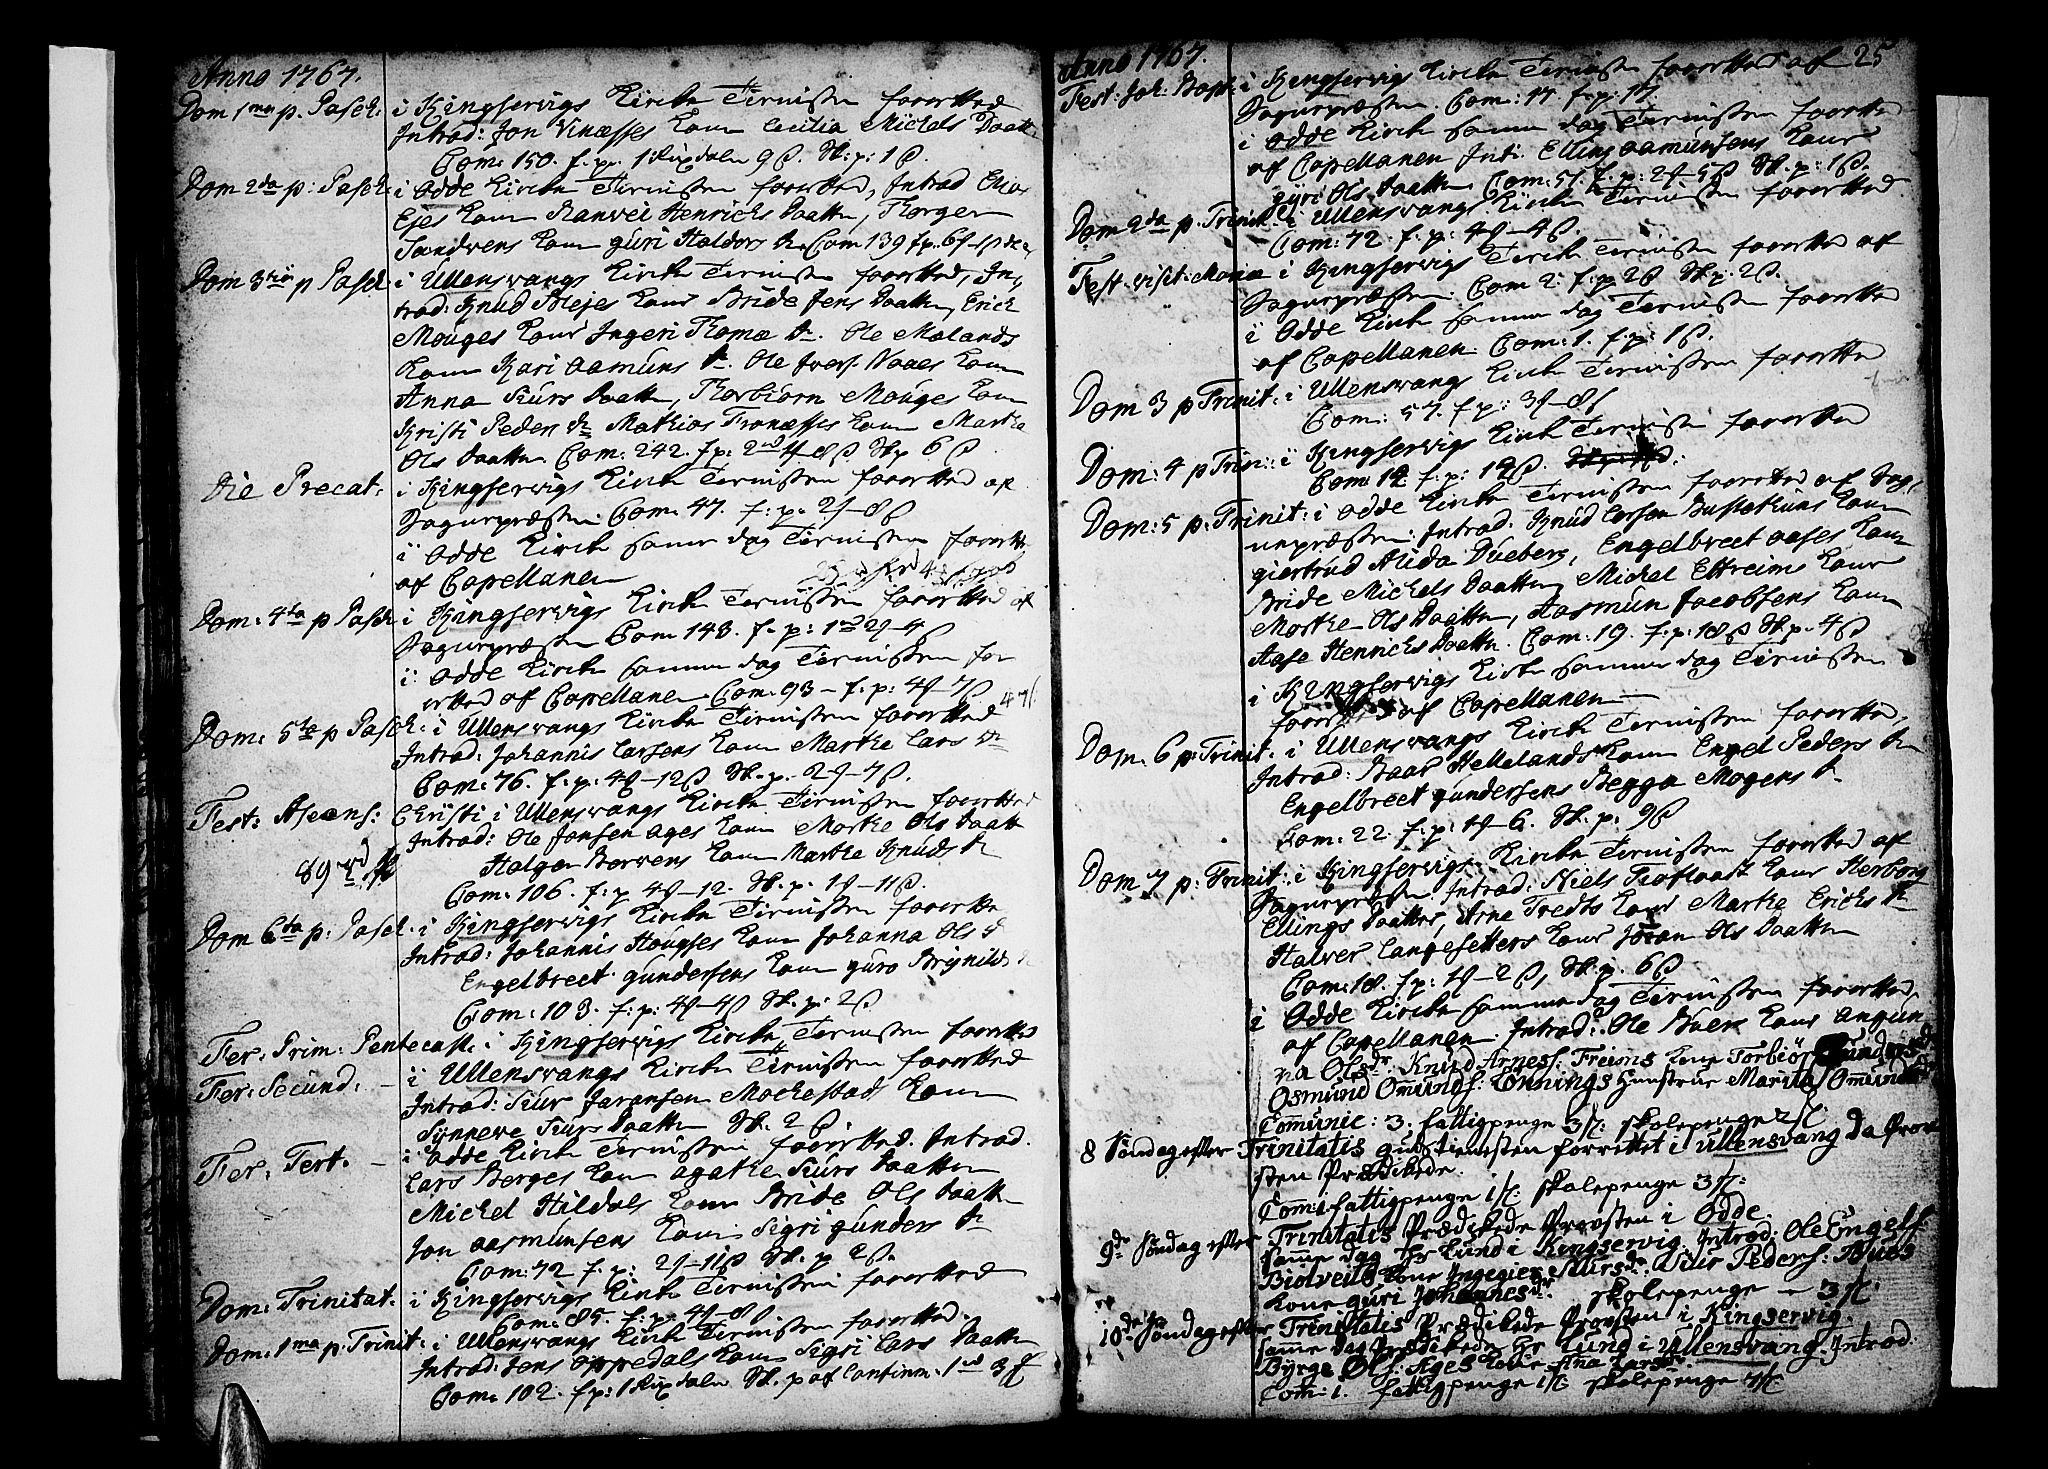 Anno 1767.
Dom 1ma p. Pasch: i Kingservigs Kircke Tienisten forretted
Introd: Jon Vinæsses Kone Cecilia Michels Daatt
Com: 150. f. p. 1 Rixdaler 9ß. Sk: p: 1ß.
Dom 2da p: Pasch: i Odde Kircke Tienisten forretted, Introd
Ejes Kone Ranvei Henrichs Daatter, Torger
Sandvens Kone Guri Haldors Dr Com 139 f p.
Dom 3tia p Pasch i Ullensvangs Kircke Tienisten forretted, In-
trod: Knud Blejes Kone Bride Jens Daatter, Erich
Mouges Kone Ingeri Thomæ Dr. Ole Mælands
Kone Kari Aamuns Dr. Ole Ivers. Naaes Kone
Anna Siurs Daatter, Thorbiørn Mouges Kone
Kristi Peders Dr Mathias Tronæsses Kone Martha
Ols Daatter. Com: 242. f p: Sk p 6ß
Die Precat: i Kingservigs Kircke Tienisten forretted af
Sognepræsten. Com: 47. f: p:
i Odde Kircke samme dag Tienisten forrette
af Capellanen
Dom: 4ta p Pasch i Kingservigs Kircke Tienisten forretted af
Sognepræsten Com 143. f. p:
i Odde Kircke samme dag Tienisten for
retted af Capellanen Com: 93 - f: p:
Dom: 5ta p Pasch: i Ullensvangs Kircke Tienisten forretted
Introd: Johannis Larsens Kone Marthe Lars Dr
Com: 76. f: p: 4 - 12ß Sk. p. 2 - 7ß.
Fest: Ascens: Christi i Ullensvangs Kircke Tienisten forretted
Introd: Ole Jonsen Ages Kone Marthe Ols Daatt
Holger Børvens Kone Marthe Knuds Dr
Com: 106. f: p 4 - 12. Sk. p: 1 - 11ß.
Dom 6ta p: Pasch. i Kingservigs Kircke Tienisten forrette
Introd: Johannis Hougses Kone Johanna Ols d
Engelbreet Gundersens Kone Guro Brÿnilds
Com: 103. f: p: 4 - 4ß Sk p: 2ß
Fer: Prim: Pentecast: i Kingservigs Kircke Tienisten forretted
Fer: Secund. - i Ullensvangs Kircke Tienisten forretted
Introd: Siur Joransen Mockestad Kone
Sÿnneve Siurs Daatter Sk. 2ß
Fer: Tert. - i Odde Kircke Tienisten forretted. Introd.
Lars Berges Kone Agathe Siurs Daatter
Michel Hildals Kone Bride Ols Daatter
Jon Aasmunsens Kone Sigri Gunders Dr
Com: 42 f: p: 2 - 11ß Sk. p 2ß.
Dom: Trinitat. i Kingservigs Kircke Tienisten forretted
Com: 85. f: p:
Dom: 1ma p: Trinit: i Ullensvangs Kircke Tienisten forretted.
Introd: Jens Oppedals Kone Sigri Lars Daatter
Com: 102. f p: 1 Rixdaler Sk. p af
Anno 1767. 25
Fest: Joh: Bapt: i Kingservigs Kircke Tienisten forretted af
Sognepræsten. Com: 17. f: p: 17.
i Odde Kircke samme dag Tienisten forretted
af Capellanen Int: Elling Aamunsens Kone
Gÿri Ols Daatter. Com: 51. f: p: 2 - 5ß Sk. p: 1ß.
Dom 2da p. Trinit: i Ullensvangs Kircke Tienisten forretted
Com: 72. f: p: 4 - 4ß.
Fest: visit: Mariæ i Kingservigs Kircke Tienisten forretted af
Sognepræsten: Com 2. f: p 2ß Sk. p. 2ß.
i Odde Kircke samme dag Tienisten forretted
af Capellanen Com: 1. f: p: 1ß.
Dom 3 p Trinit: i Ullensvangs Kircke Tienisten forretted
Com: 57. f p:
Dom: 4 p Trin: i Kingservigs Kircke Tienisten forretted
Com: 12 f: p: 12ß.
Dom: 5 p: Trinit: i Odde Kircke Tienisten forretted af Sog-
nepræsten: Introd: Knud Larsen Kone
Giertrud Alida Dueberg, Engelbreet Aases Kone
Bride Michels Daatter, Michel Eitreims Kone
Marthe Ols Daatter, Aasmun Jacobsens Kone
Aase Henrichs Daatter. Com: 19. f: p: 18ß Sk. p. 4ß
i Kingservigs Kircke samme dag Tienisten
forretted af Capellanen
Dom. 6 p: Trinit: i Ullensvangs Kircke Tienisten forretted,
Introd: Baar Hellelands Kone Engel Peders Dr
Engelbreet Gundersens Begga Mogens Dr
Com: 22. f: p: 1 - 6. Sk: p: 9ß
Dom 7 p: Trinit: i Kingservigs Kircke Tienisten forretted af
Sognepræsten. Introd: Niels Kone Herborg
Ellings Daatter, Arne Tredts Kone Marthe Erichs Dr
Halver Langesetters Kone Joran Ols Daatter
Com: 18. f: p: 1 - 2ß, Sk. p. 6ß
i Odde Kircke samme dag Tienisten forretted,
af Capellanen. Introd: Ole Kone Angun
na Olsdr. Knud Arness. Freims Kone Torbiør Gundersdr
Osmund Omunds: Lønnings Hunstrue Marita Omundsdr
Comunic: 3. fattigpenge 3ſk: skolepenge 2ſk.
8 Søndag efter Trinitatis Gudstienisten forrettet i Ullensvang da Prov-
sten Prædikede.
Com: 1 fattigpenge 1ſk: skolepenge 3ſk:
9de Søndag efter Trinitatis Prædikede Provsten i Odde.
samme dag Hr Lund i Kingservig. Introd: Ole Engels:
Biotveits Kone Ingegier Siursdr. Siur Peders: Bues
Kone Guri Johannesdr. skolepenge - 3ſk:
10de Søndag efter Trinitatis Prædikede Provsten i Kingservig.
samme dag Prædikede Hr Lund i Ullensvang. Introd:
Byrge Ols: Ages Kone Ana Larsdr.
Com: 1. fattigpenge 1ſk skolepenge